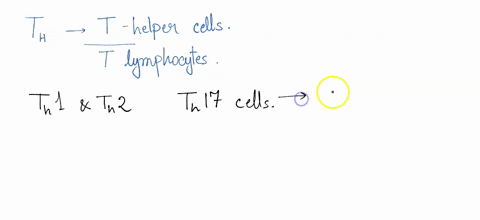 T_H → T-helper cells.
T lymphocytes.
T_h1 & T_h2 T_h17 cells. →